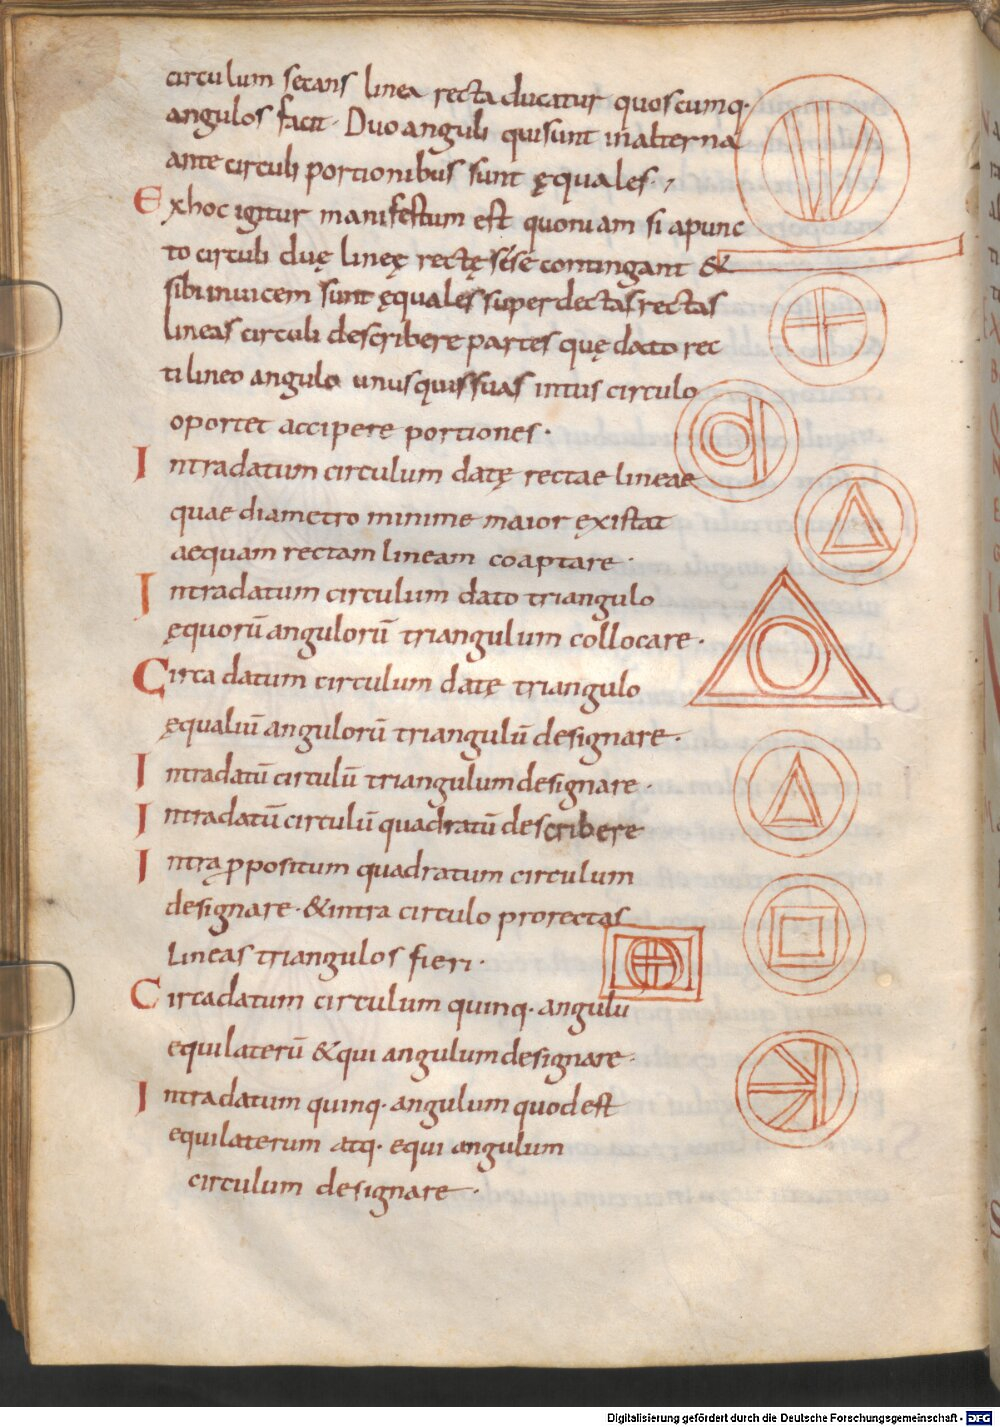 circulum secans linea recta ducatur quoscumq·
angulos facit · Duo anguli qui sunt in alterna
ante circuli portionibus sunt ęquales,
Ex hoc igitur manifestum est quoniam si a punc
to circuli duę lineę rectę sese contingant &
sibi invicem sunt ęquales super dectas rectas
lineas circuli describere partes quę dato rec
tilineo angulo unusquissuas intus circulo
oportet accipere portiones·
Intra datum circulum datę rectae lineae
quae diametro minime maior existat
aequam rectam lineam coaptare·
Intra datum circulum dato triangulo
ęquorū angulorū triangulum collocare·
Circa datum circulum datę triangulo
ęqualiū angulorū triangulū designare·
Intra datū circulū triangulum designare·
Intra datū circulū quadratū describere
Intra p̄positum quadratum circulum
designare · & intra circulo pro rectas
lineas triangulos fieri·
Circa datum circulum quinq· angulū
equilaterū & qui angulum designare·
Intra datum quinq· angulum quod est
equilaterum atq· equi angulum
circulum designare·
Digitalisierung gefördert durch die Deutsche Forschungsgemeinschaft - DFG